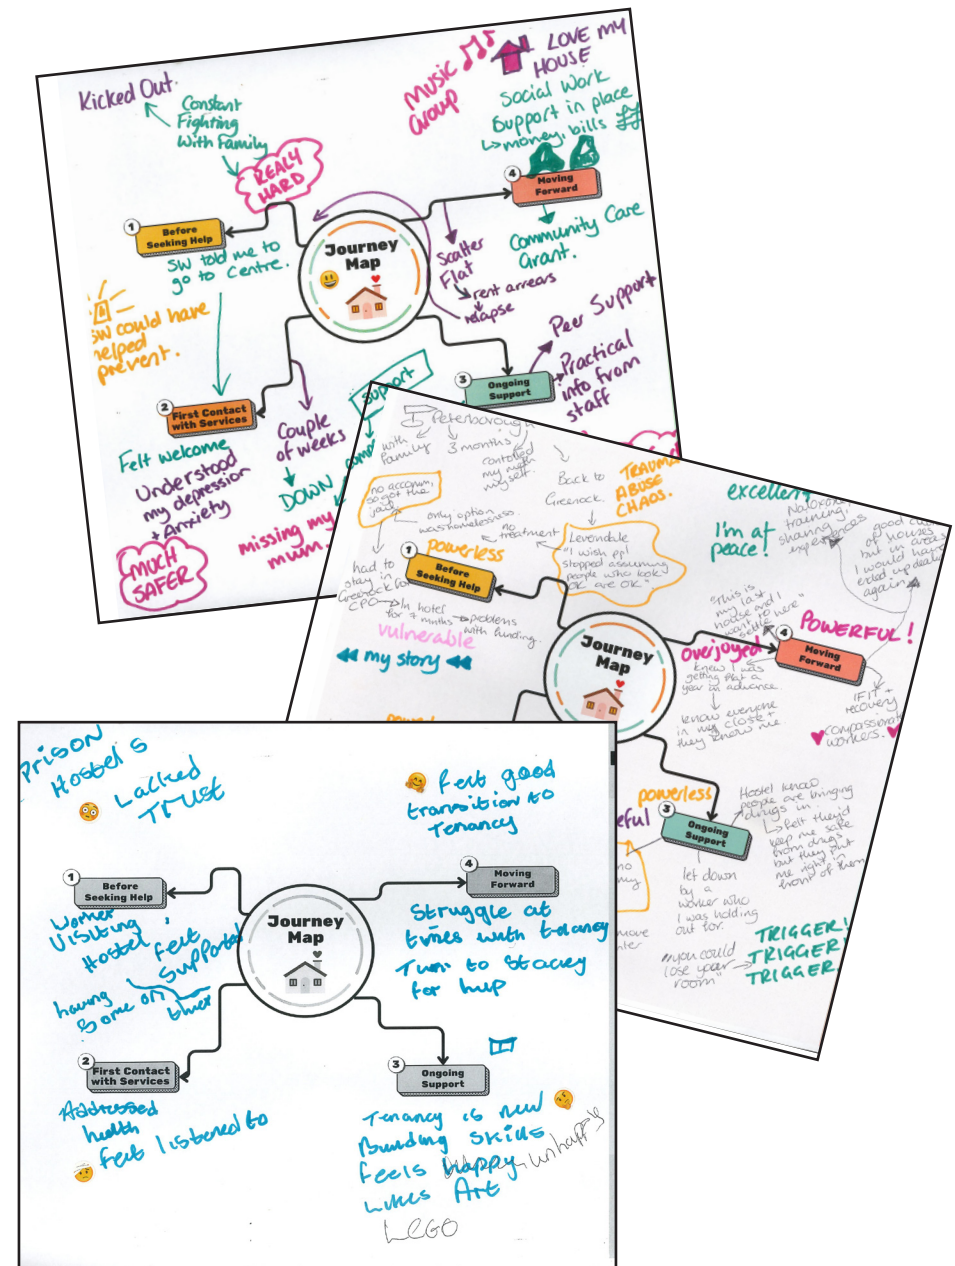 Kicked Out.
Constant
Fighting
With Family
REALY
HARD
MUSIC
Group
LOVE MY
HOUSE
Social Work
Support in place
↳ money, bills
4
Moving
Forward
Community Care
Grant.
1
Before
Seeking Help
SW told me to
go to Centre.
Journey
Map
Scatter
Flat
rent arrears
relapse
SW could have
helped
prevent.
Peer Support
Practical
info from
staff
3
Ongoing
Support
Support
2
First Contact
with Services
Couple
of weeks
DOWN
missing my
mum.
Felt welcome
Understood
my depression
+ Anxiety
MUCH
SAFER
Peterborough
with
family
3 months
controlled
my meth
myself.
Back to
Greenock.
TRAUMA
ABUSE
CHAOS.
no accomm,
so got the
jail
only option
was homelessness.
no
treatment
Levendale
"I wish ppl
stopped assuming
people who look
OK are OK."
powerless
1
Before
Seeking Help
had to
stay in
Greenock for
CPO
In hotel
for 7 mnths
problems
with funding.
vulnerable
my story
Journey
Map
excellent
I'm at
peace!
Naloxone
training,
sharing
experiences
good
of houses
but in areas
I would have
ended up dead
again
"This is
my last
house and I
want to
settle here"
POWERFUL!
overjoyed
4
Moving
Forward
knew I was
getting flat a
year in advance.
know everyone
in my close +
they know me.
IFIT +
recovery
compassionate
workers.
powerless
3
Ongoing
Support
Hostel knew
people are bringing
drugs in.
↳ felt they'd
keep me safe
from drugs
but they put
me right in
front of them
let down
by a
worker who
I was holding
out for.
"you could
lose your
room"
TRIGGER!
TRIGGER!
TRIGGER.
Prison
Hostels
Lacked
Trust
Felt good
transition to
Tenancy
1
Before
Seeking Help
Worker
Visiting
Hostel,
felt
Supported
having
Some on
there
Journey
Map
4
Moving
Forward
Struggle at
times with tenancy
Turn to Stacey
for help
2
First Contact
with Services
Addressed
health
Felt listened to
3
Ongoing
Support
Tenancy is new
Building Skills
feels happy
unhappy
Likes Art
LEGO